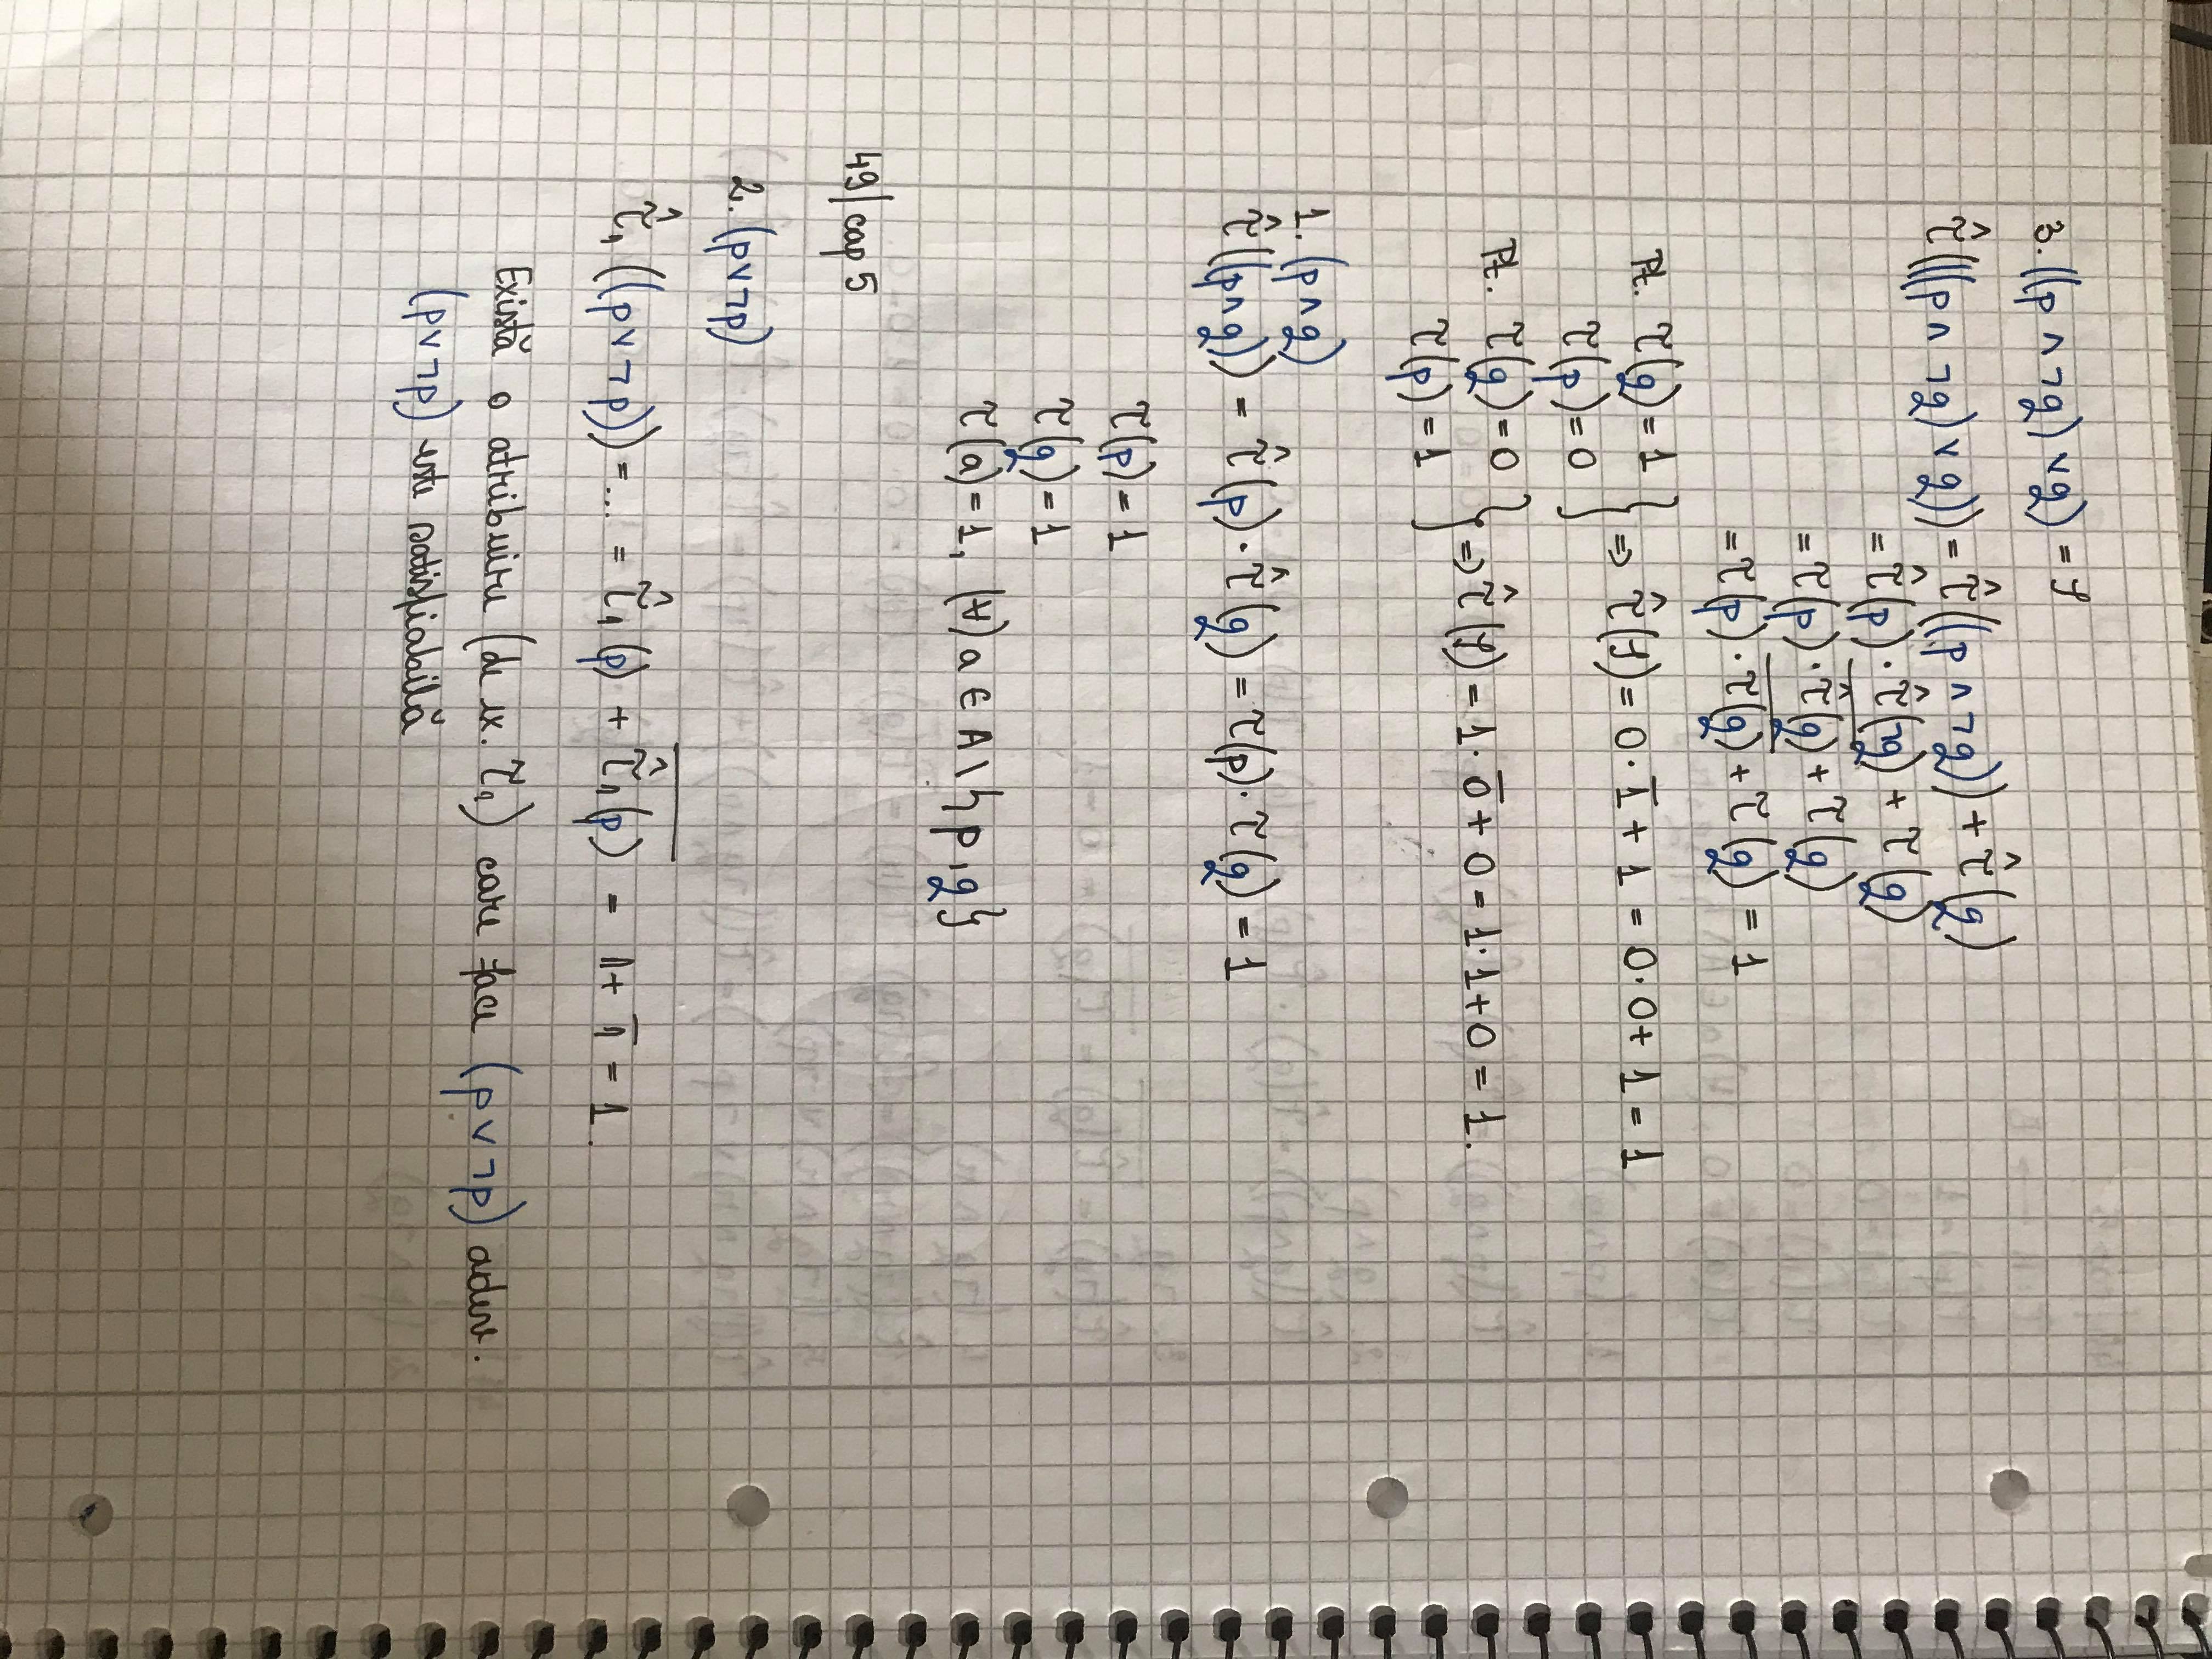 3. ((p ∧ ¬q) ∨ q) = φ
τ̂(((p ∧ ¬q) ∨ q)) = τ̂((p ∧ ¬q)) + τ̂(q)
= τ̂(p) · τ̂(¬q) + τ(q)
= τ(p) · \overline{τ̂(q)} + τ(q)
= τ(p) · \overline{τ(q)} + τ(q) = 1
Pt. τ(q) = 1
τ(p) = 0 } ⇒ τ̂(φ) = 0 · \overline{1} + 1 = 0 · 0 + 1 = 1
Pt. τ(q) = 0
τ(p) = 1 } ⇒ τ̂(φ) = 1 · \overline{0} + 0 = 1 · 1 + 0 = 1.
1. (p ∧ q)
τ̂((p ∧ q)) = τ̂(p) · τ̂(q) = τ(p) · τ(q) = 1
τ(p) = 1
τ(q) = 1
τ(a) = 1, (∀) a ∈ A \ {p, q}
49/ cap 5
2. (p ∨ ¬p)
τ̂₁((p ∨ ¬p)) = ... = τ̂₁(p) + \overline{τ̂₁(p)} = 1 + \overline{1} = 1.
Există o atribuire (de ex. τ₁) care face (p ∨ ¬p) adev.
(p ∨ ¬p) este satisfiabilă